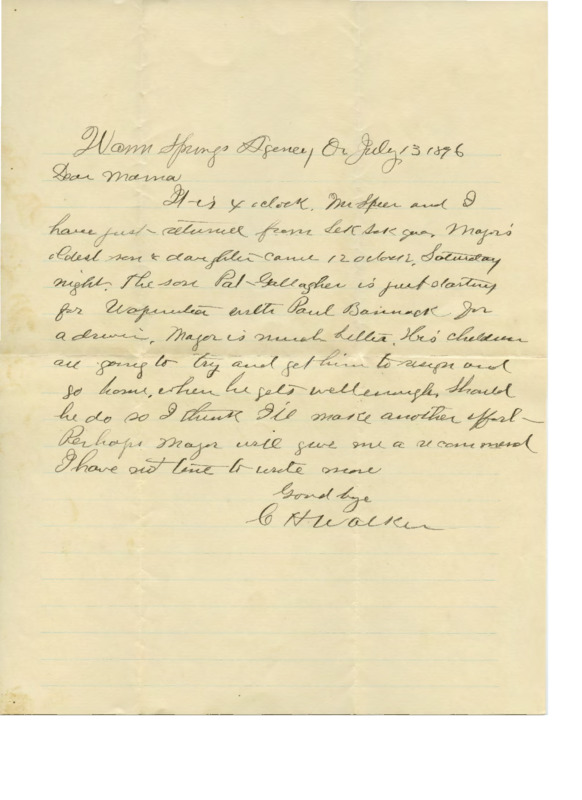 Warm Springs Agency Or July 13 1896
Dear Mama
It is 4 oclock. Mr Speer and I
have just returned from Sek Sek qua. Major's
oldest son & daughter came 12 oclock, Saturday
night. The son Pat Gallagher is just starting
for Wapinitia with Paul Bannock for
a driver. Major is much better. His children
are going to try and get him to resign and
go home, when he gets well enough, Should
he do so I think I'll make another effort—
Perhaps Major will give me a recommend
I have not time to write more
Good bye
C H Walker